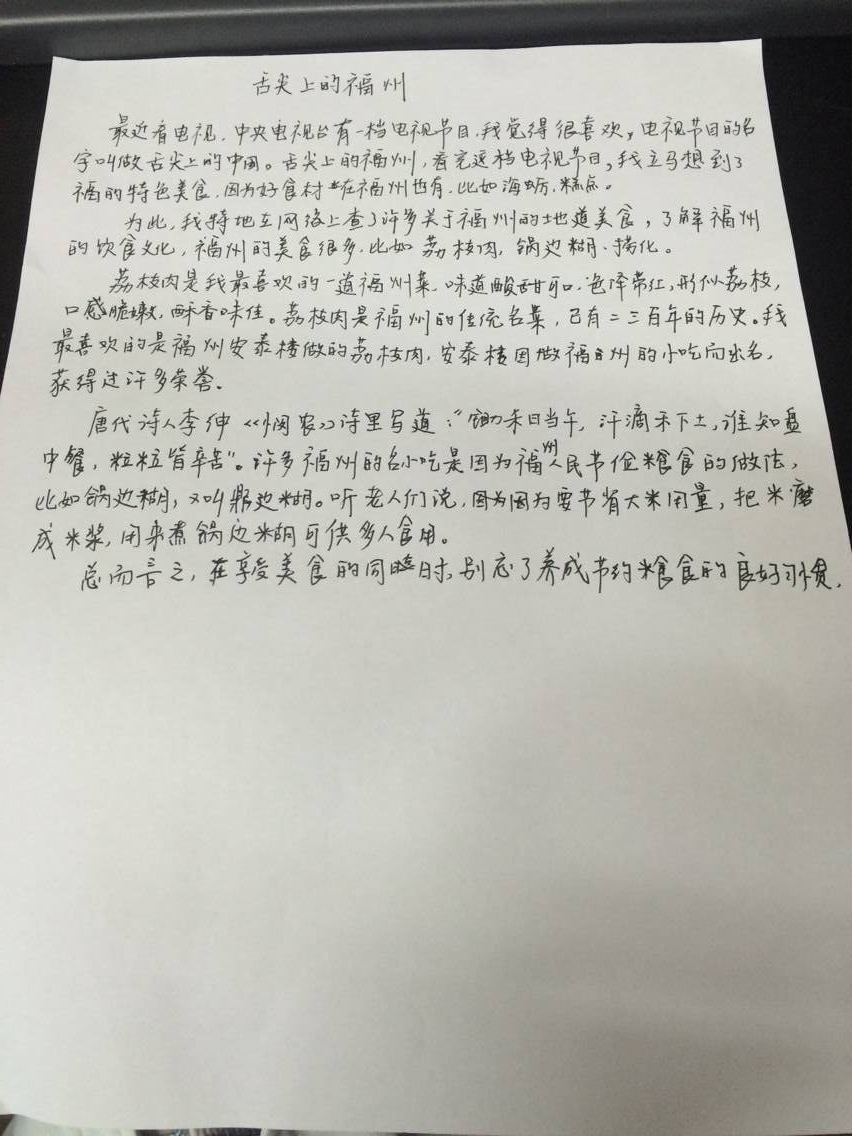 舌尖上的福州
最近看电视,中央电视台有一档电视节目,我觉得很喜欢,电视节目的名
字叫做舌尖上的中国。舌尖上的福州,看完这档电视节目,我立马想到了
福的特色美食,因为好食材在福州也有,比如海蛎,糕点。
为此,我特地在网络上查了许多关于福州的地道美食,了解福州
的饮食文化,福州的美食很多,比如荔枝肉,锅边糊、
荔枝肉是我最喜欢的一道福州菜,味道酸甜可口,色泽带红,形似荔枝,
口感脆嫩,酥香味佳。荔枝肉是福州的传统名菜,已有二三百年的历史。我
最喜欢的是福州安泰楼做的荔枝肉,安泰楼因做福州的小吃而出名,
获得过许多荣誉。
唐代诗人李绅《悯农》诗里写道:“锄禾日当午,汗滴禾下土,谁知盘
中餐,粒粒皆辛苦”。许多福州的名小吃是因为福州人民节俭粮食的做法,
比如锅边糊,又叫鼎边糊。听老人们说,因为因为要节省大米用量,把米磨
成米浆,用来煮锅边糊可供多人食用。
总而言之,在享受美食的同时,别忘了养成节约粮食的良好习惯.